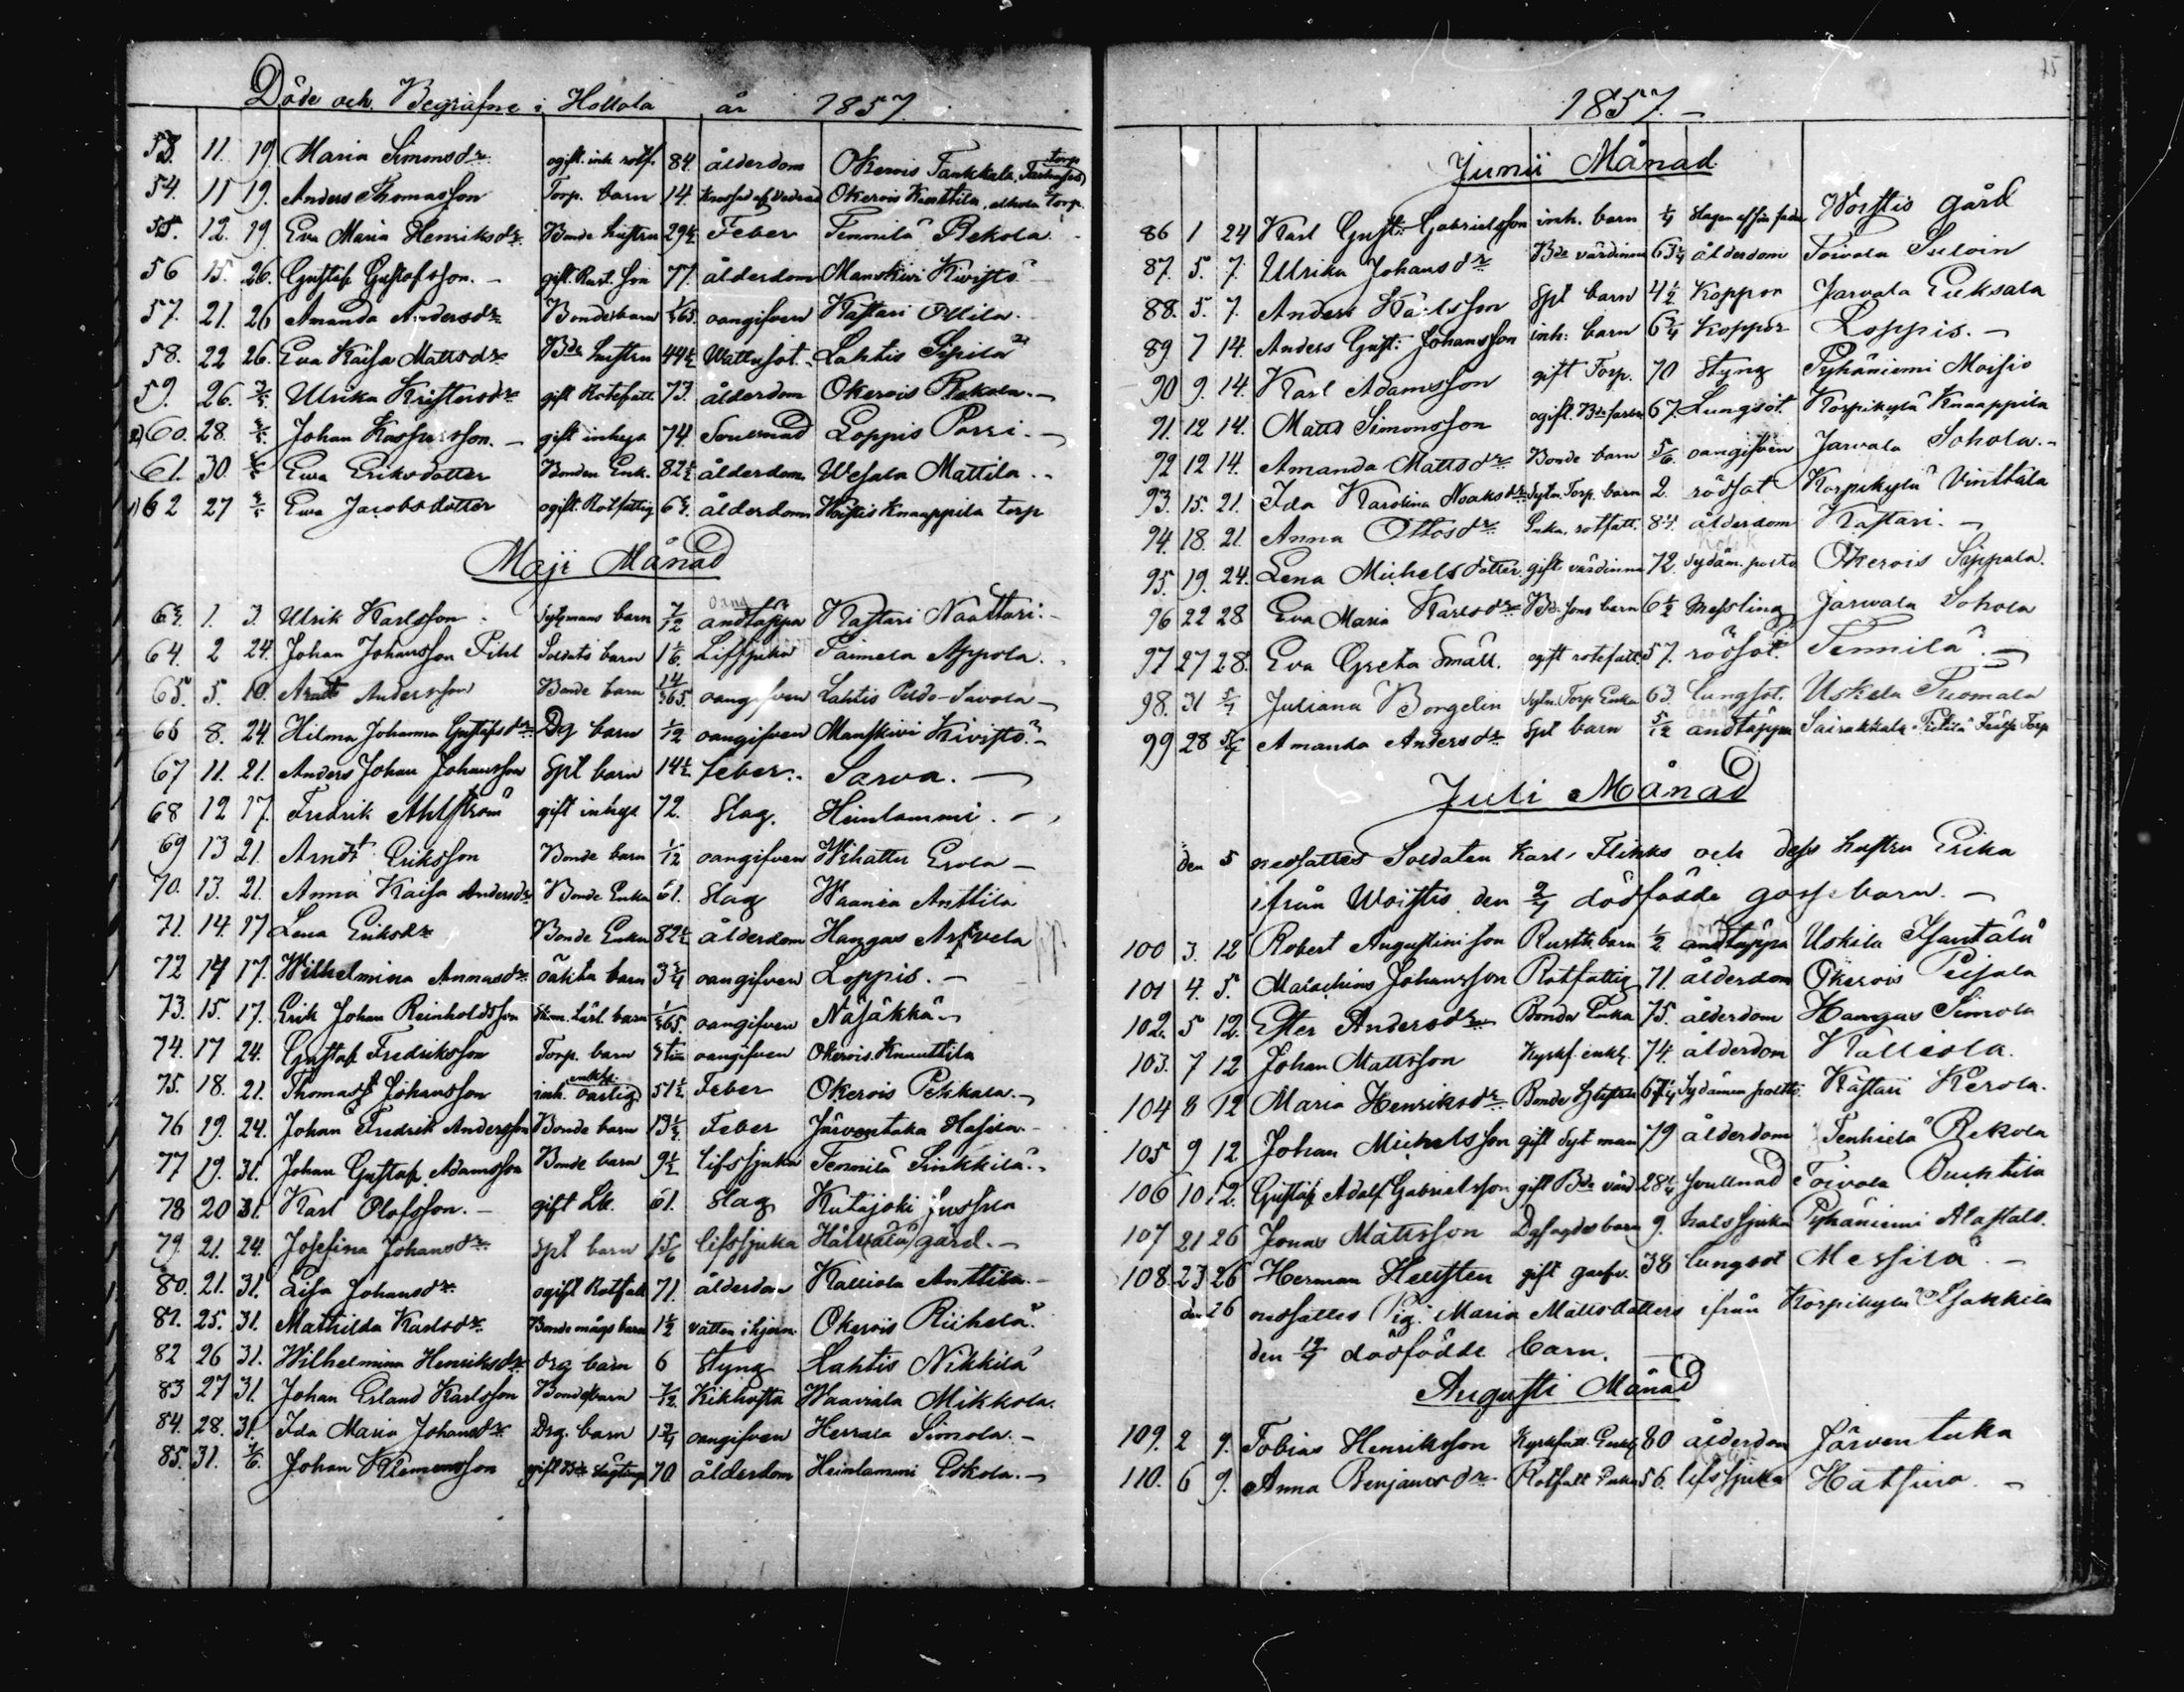 Döde och Begrafne i Hollola år 1857.
53. 11. 19 Maria Simonsdr ogift. inh. rotf. 84. ålderdom Okerois Tankkala, torp
54. 11 19. Anders Thomasson Torp. barn 14. Okerois Knuttila, torp.
55. 12. 19. Eva Maria Henriksdr Bonde hustru 29½ Feber Tennilä Rekola.
56 15. 26. Gustaf Gustafsson. gift. Rust. Son 77. ålderdom Manskivi Kivistö
57. 21. 26 Amanda Andersdr Bondebarn oangifven Kastari Ollila.
58. 22 26. Eva Kaisa Mattsdr Bde hustru 44½ Wattusot. Lahtis Sipilä
59. 26. 3/5 Ulrika Kristersdr gift Rotefatt. 73. ålderdom Okerois Rekola.
2) 60. 28. 3/5 Johan Kaspersson. gift inhys 74. Loppis Parri.
61. 30. Ewa Eriksdotter Bonden Enk. 82½ ålderdom Wesala Mattila.
1) 62 27 3/5 Ewa Jacobsdotter ogift. Rotfattig 63. ålderdom Knaappila torp
Maji Månad
63. 1. 3. Ulrik Karlsson Sytgmans barn 7/12 andtäppa Kastari Naattari.
64. 2 24. Johan Johansson Pihl Soldats barn 1 1/6. Lifsjuka Paimela Appola.
65. 5. 10. Andersson Bonde barn 14/365 oangifven Lahtis Peldo-Savola
66 8. 24. Hilma Johanna Gustafsdr Dg barn 1/12 oangifven Manskivi Kivistö.
67 11. 21. Anders Johan Johansson Spl barn 14½ feber. Sarva.
68 12 17. Fredrik Ahlström gift inhys 72. Slag. Heinlammi.
69 13 21. Arndt Eriksson Bonde barn 1/12 oangifven Wihattu Erola
70. 13. 21. Anna Kaisa Andersdr Bonde Enka 61. Slag Waania Anttila
71. 14. 17 Lena Eriksdr Bonde Enka 82½ ålderdom Hangas Arvela
72 14 17. Wilhelmina Annasdr oäkta barn 3¾ oangifven Loppis.
73. 15. 17. Erik Johan Reinholdsson Skom. Lärl. barn 1/365. oangifven Näjäkkä
74. 17 24. Gustaf Fredriksson Torp. barn oangifven Okerois. Knuuttila
75. 18. 21. Thomas Johansson inh. enkl. 51½ Feber Okerois Pekkala.
76 19. 24. Johan Fredrik Andersson Bonde barn 13½ Feber Järventaka Hasila.
77 19. 31. Johan Gustaf Adamsson Bonde barn 9½ lifssjuka Tennilä Sinkkilä.
78 20 31. Karl Olofsson. gift Lk. 61. Slag Kutajoki Jussila
79. 21. 24. Josefina Johansdr Spl barn 1 5/6 lifssjuka Hälvälä gård.
80. 21. 31. Lisa Johansdr ogift Rotfatt 71. ålderdom Kalliola Anttila.
81. 25. 31. Mathilda Karlsdr Bonde mågs barn 1½ vatten i hjern. Okerois Riihelä
82 26 31. Wilhelmina Henriksdr drg barn 6 Styng Lahtis Nikkilä
83 27 31. Johan Erland Karlsson Bondebarn 7/12. Kikhosta Waaviala Mikkola.
84. 28. 31. Ida Maria Johansdr Drg. barn 1¾ oangifven Herrala Simola.
85. 31. 7/6. Johan Klemensson gift Bde 70. ålderdom Heinlammi Eskola.
1857.
Junii Månad
86 1 24 Karl Gust: Gabrielsson inh. barn ¼ Slagen af sin fader Woistis gård
87. 5. 7. Ulrika Johansdr Bde värdinna 63¾ ålderdom Toivola Suloin
88. 5. 7. Anders Karlsson Spl barn 4½ Koppor Jarvala Euksala
89 7 14. Anders Gust: Johansson inh: barn 6¾ Koppor Loppis.
90 9. 14. Karl Adamsson gift Torp. 70 Styng Pyhäniemi Moisio
91. 12 14. Matts Simonsson ogift. Bde farbr 67. Lungsot. Korpikylä Knaappila
92 12 14. Amanda Mattsdr Bonde barn 5/6. oangifven Jarvala Sohola.
93. 15. 21. Ida Karolina Noaksdr Sytn. Torp. barn 2. rödsot Korpikylä Vinttala
94. 18. 21. Anna Ottosdr Enka. rotfatt. 84. ålderdom Kastari.
95. 19. 24. Lena Michelsdotter gift värdinna 72. Sydäm. polto Okerois Seppälä.
96 22 28 Eva Maria Karlsdr Bde Sons barn 6½ Messling Jarvala Sohola
97 27 28. Eva Greta Småll. ogift rotefatt. 57. rödsot. Tennilä.
98. 31 5/7 Juliana Borgelin Sytn. Torp Enka 63. lungsot. Uskela Tuomala
99 28 5/7 Amanda Andersdr Spl barn 5/12 andtäppa Sairakkala Pietilä Torp
Juli Månad
den 5 nedsattes Soldaten Karl Flinks och dess hustru Erika
ifrån Woistis den 2/7 dödfödde gossebarn.
100 3. 12 Robert Augustinisson Rusth. barn ½ andtäppa Uskila Isäntälä
101 4. 5. Malachias Johansson Rotfattig 71. ålderdom Okerois Peijala
102. 5 12. Ester Andersdr Bonde Enka 75. ålderdom Hangas Simola
103. 7 12 Johan Mattsson Kyrkf. enkl. 74. ålderdom Kalliola.
104 8 12 Maria Henriksdr Bonde Hustru 67¼ Sydämen poltto. Kastari Kerola.
105 9 12 Johan Michelsson gift Syt man 79 ålderdom Tenhiela Rekola
106 10. 12. Gustaf Adolf Gabrielsson gift Bde värd 28¼ svullnad Toivola Duuktila
107 21 26 Jonas Mattsson barn 9. halssjuka Pyhäniemi Alastalo.
108. 23 26 Herman Hellsten gift 38 lungsot Messilä
den 26 nedsattes Pig. Maria Mattsdotters ifrån Korpikylä Isakkila
den 19/7 dödfödde barn.
Augusti Månad
109. 2 9. Tobias Henriksson Kyrkfatt. Enkl 80 ålderdom Järventaka
110. 6 9. Anna Benjamsdr Rotfatt Enka 56. lifssjuka Hatsina.